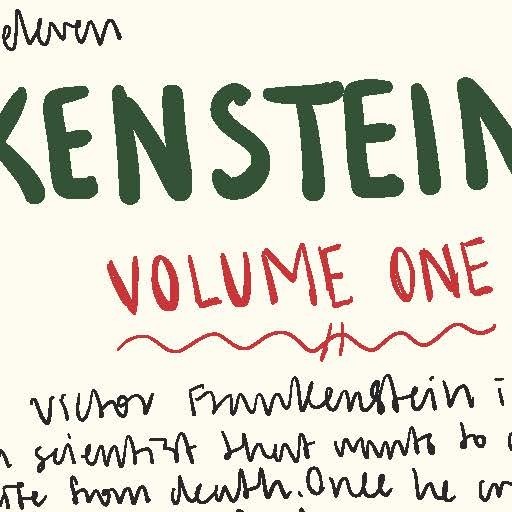 eleven
KENSTEIN
VOLUME ONE
Victor Frankenstein i
scientist that wants to
from death. Once he